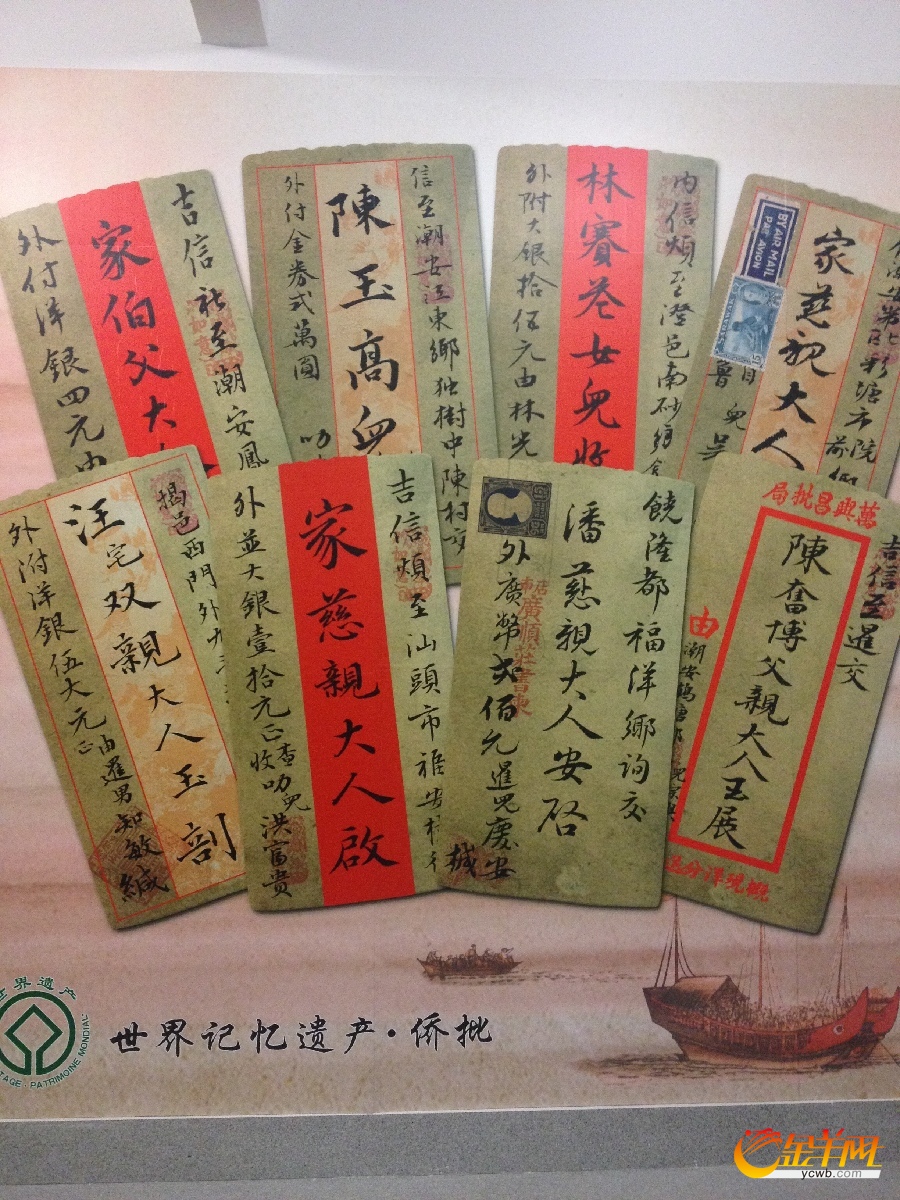 吉信
社至潮安鳳
家伯父大人
外付洋銀四元由
信至潮安江東鄉独樹中陳村交
陳玉高
外付金券弍萬圓
叻
内信煩至澄邑南砂鄉
林賽花女兒收
外附大銀拾伍元由林光
彩塘市院
家慈親大人
BY AIR MAIL
PAR AVION
揭邑西門外
汪宅双親大人玉剖
外附洋銀伍大元正
由暹男知敏緘
吉信煩至汕頭市
家慈親大人啟
外並大銀壹拾元正
查收叻兒洪富貴
饒隆都福洋鄉詢交
潘慈親大人安啓
廣順莊書柬
外廣幣弍佰元暹兒慶安
椷
萬興昌批局
吉信至暹交
陳奮博父親大人玉展
由
潮安鶴塘
世界遗产
TAGE · PATRIMOINE MONDIAL
世界记忆遗产·侨批
金羊网
ycwb.com